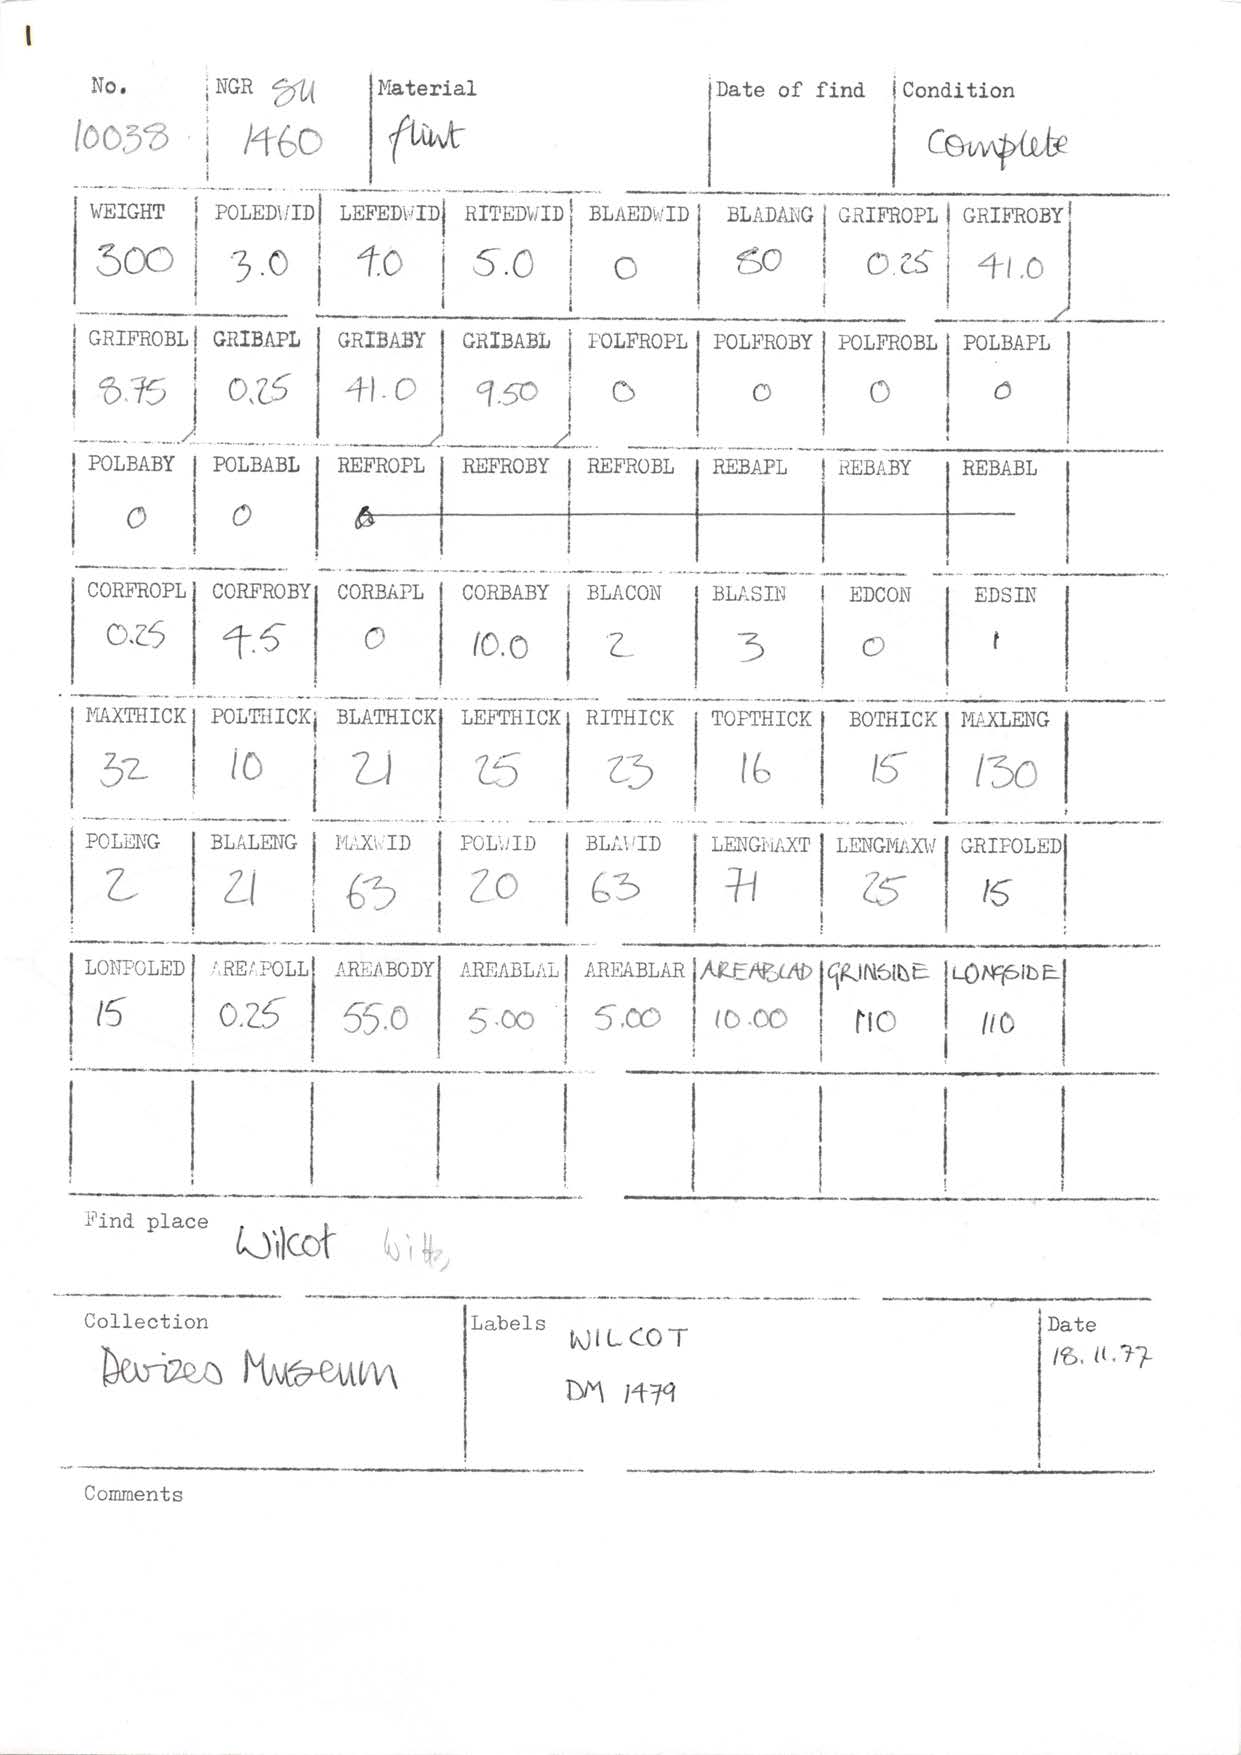 1
No. NGR SU Material Date of find Condition
10038 1460 flint complete
WEIGHT POLEDWID LEFEDWID RITEDWID BLAEDWID BLADANG GRIFROPL GRIFROBY
300 3.0 4.0 5.0 0 80 0.25 41.0
GRIFROBL GRIBAPL GRIBABY GRIBABL POLFROPL POLFROBY POLFROBL POLBAPL
8.75 0.25 41.0 9.50 0 0 0 0
POLBABY POLBABL REFROPL REFROBY REFROBL REBAPL REBABY REBABL
0 0 0
CORFROPL CORFROBY CORBAPL CORBABY BLACON BLASIN EDCON EDSIN
0.25 4.5 0 10.0 2 3 0 1
MAXTHICK POLTHICK BLATHICK LEFTHICK RITHICK TOPTHICK BOTHICK MAXLENG
32 10 21 25 23 16 15 130
POLENG BLALENG MAXWID POLWID BLAWID LENGMAXT LENGMAXW GRIPOLED
2 21 63 20 63 71 25 15
LONPOLED AREAPOLL AREABODY AREABLAL AREABLAR AREABLAD GRINSIDE LONGSIDE
15 0.25 55.0 5.00 5.00 10.00 110 110
Find place Wilcot Wilts
Collection Labels WILCOT Date
Devizes Museum DM 1479 18.11.77
Comments